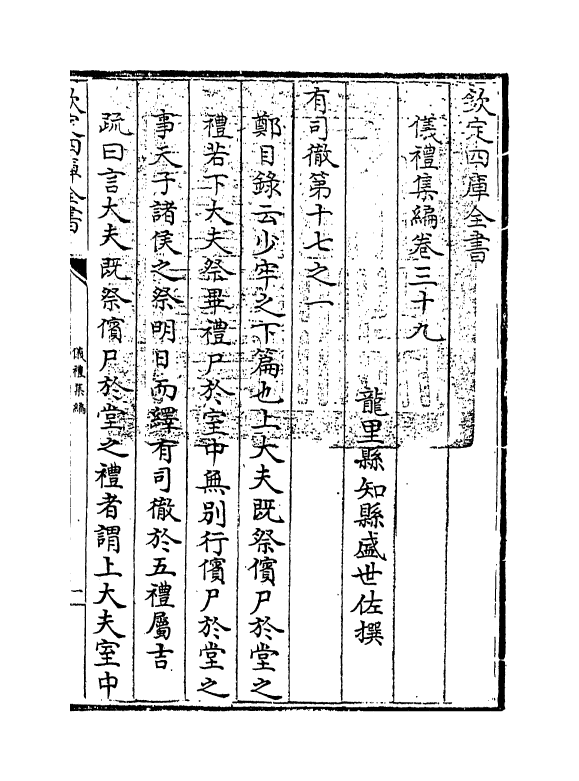 欽定四庫全書
儀禮集編卷三十九
龍里縣知縣盛世佐撰
有司徹第十七之一
鄭目錄云少牢之下篇也上大夫既祭儐尸於堂之
禮若下大夫祭畢禮尸於室中無別行儐尸於堂之
事天子諸侯之祭明日而繹有司徹於五禮屬吉
疏曰言大夫既祭儐尸於堂之禮者謂上大夫室中
欽定四庫全書
儀禮集編